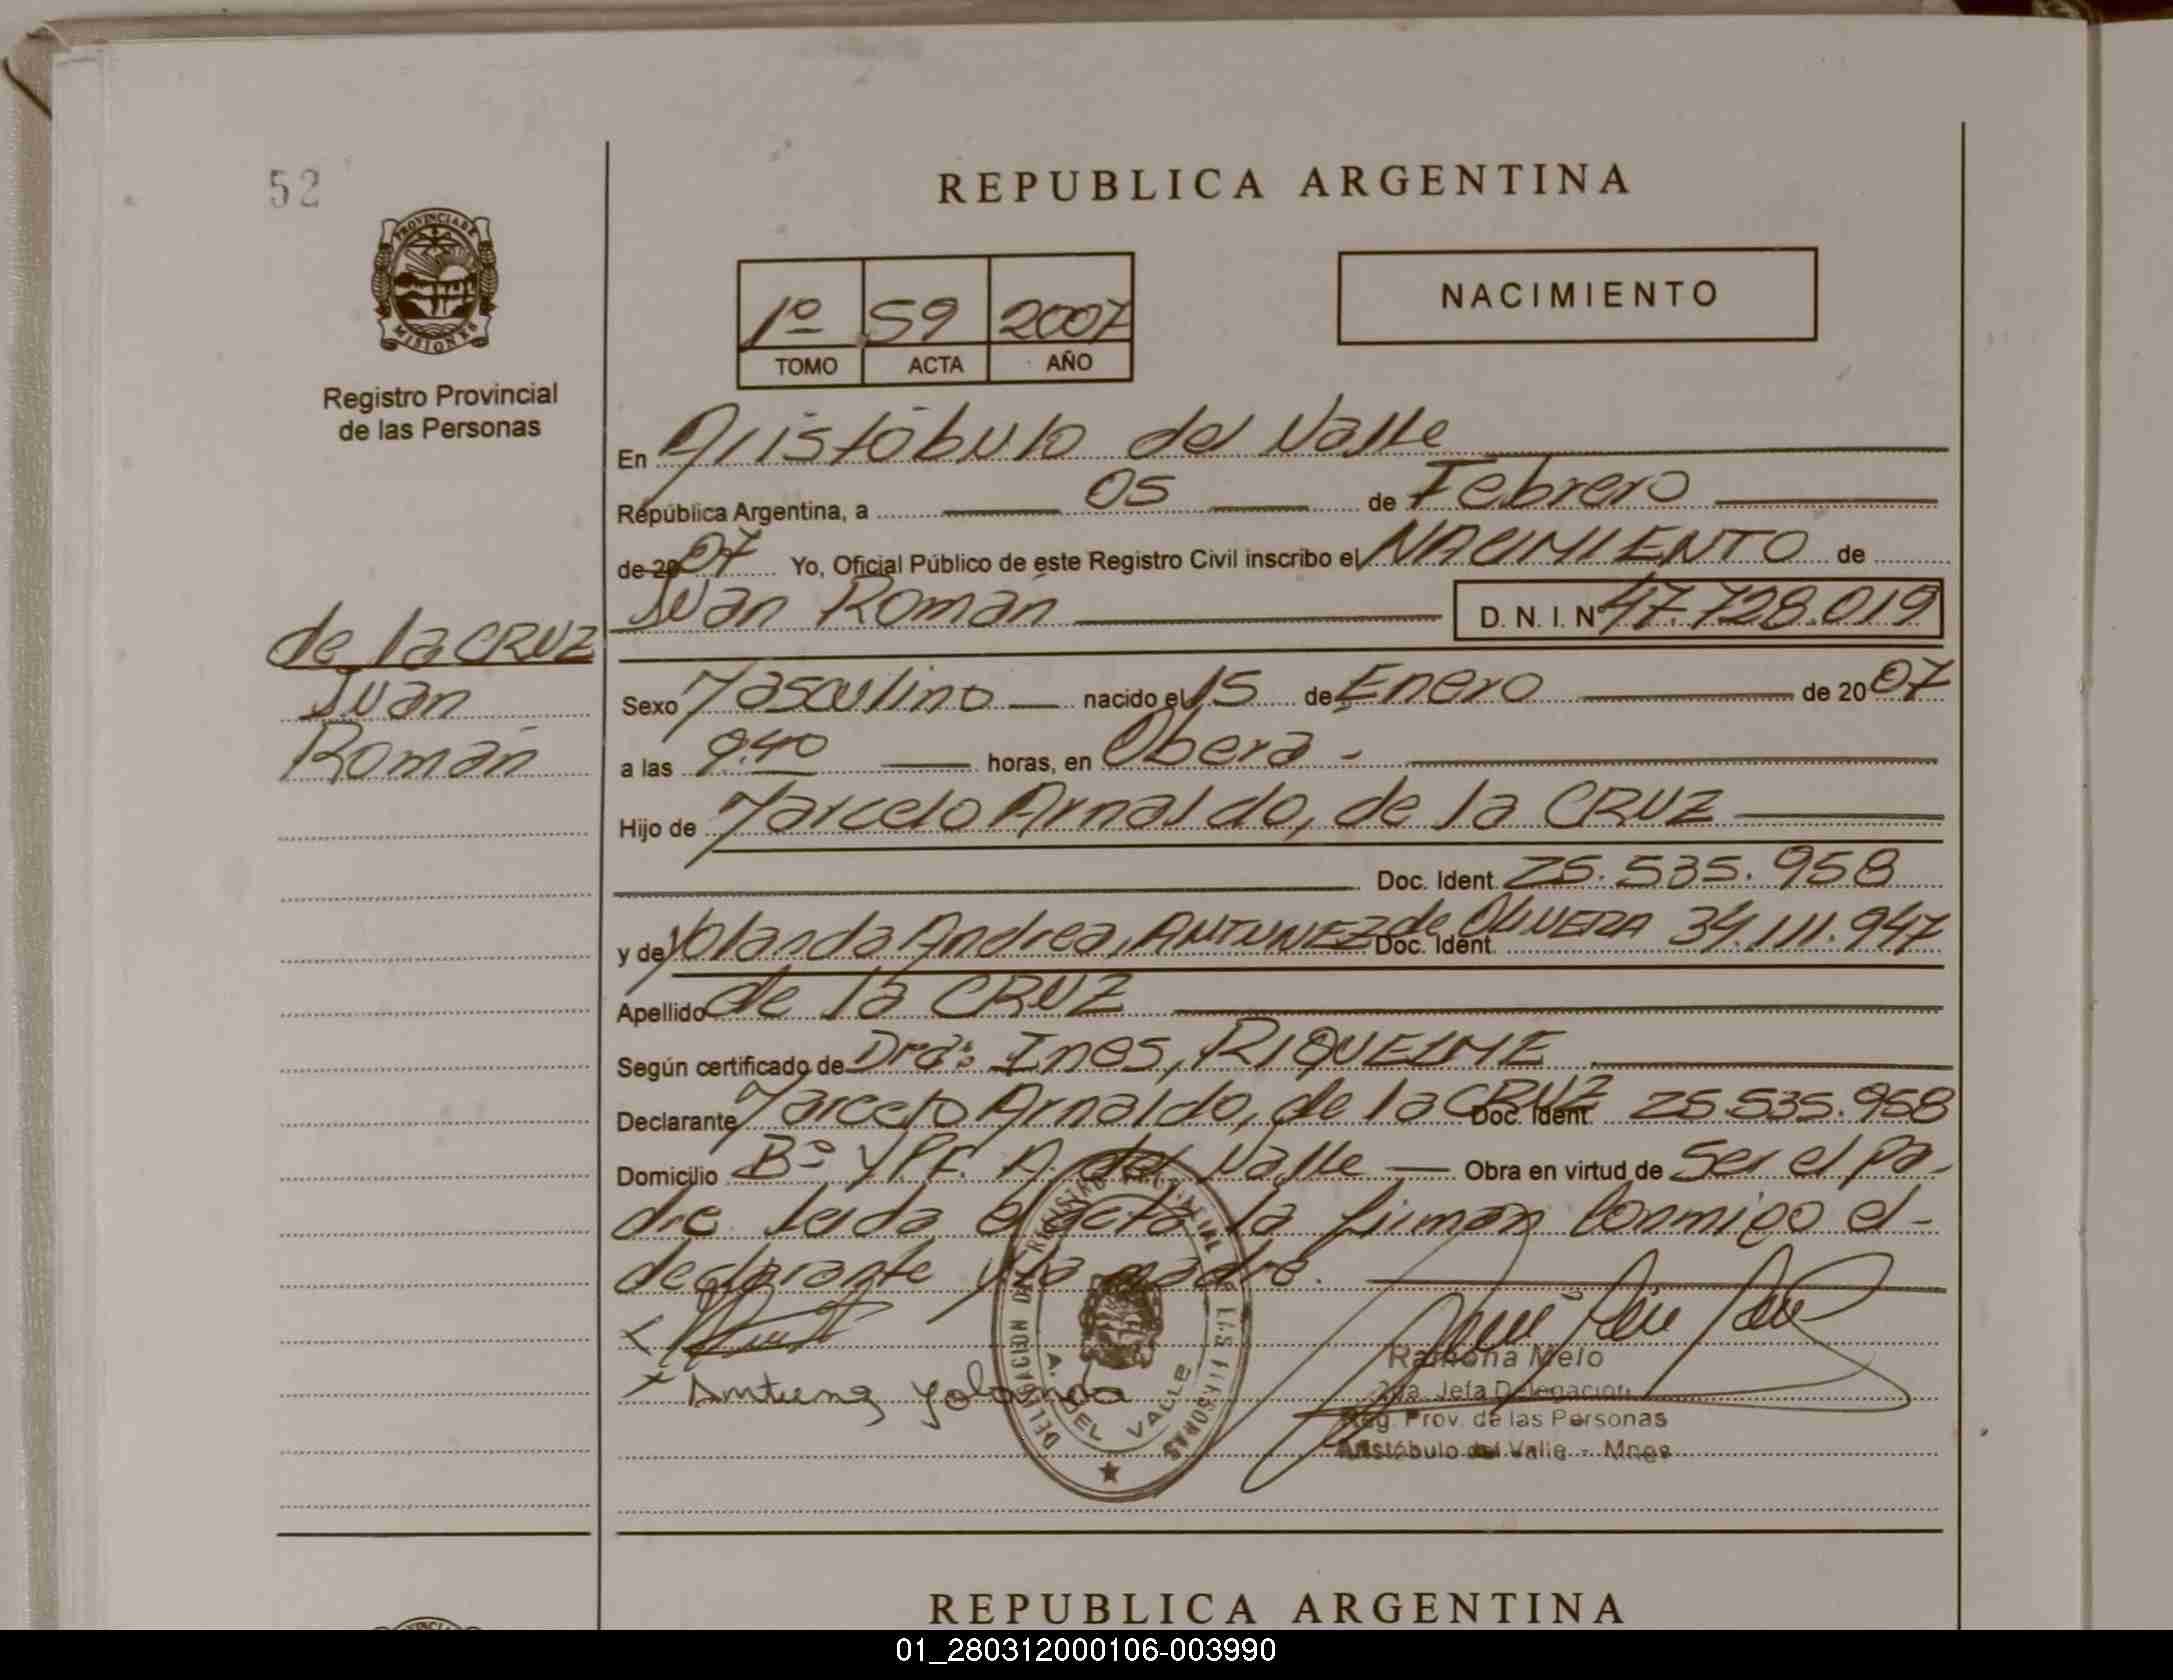 52
REPUBLICA ARGENTINA
PROVINCIA DE
MISIONES
Registro Provincial
de las Personas
1º 59 2007
TOMO ACTA AÑO
NACIMIENTO
En Aristóbulo del Valle
República Argentina, a 05 de Febrero
de 2007 Yo, Oficial Público de este Registro Civil inscribo el NACIMIENTO de
Juan Román D. N. I. Nº 47.728.019
de la CRUZ
Juan
Román
Sexo Masculino nacido el 15 de Enero de 2007
a las 9.40 horas, en Oberá -
Hijo de Marcelo Arnaldo, de la CRUZ
Doc. Ident. 25.535.958
y de Yolanda Andrea, ANTUNEZ de OLIVERA Doc. Ident. 34.111.947
Apellido de la CRUZ
Según certificado de Dra: Ines, RIQUELME
Declarante Marcelo Arnaldo, de la CRUZ Doc. Ident. 25.535.958
Domicilio Bº Y.P.F. A. del Valle Obra en virtud de Ser el pa-
dre. Leida el acta la firman Conmigo el -
declarante y la madre.
x Antunez Yolanda
DELEGACION REGISTRO PROVINCIAL DE LAS PERSONAS
A. DEL VALLE
Ramona Melo
2da. Jefa Delegación
Reg. Prov. de las Personas
Aristóbulo del Valle - Mnes
REPUBLICA ARGENTINA
01_280312000106-003990